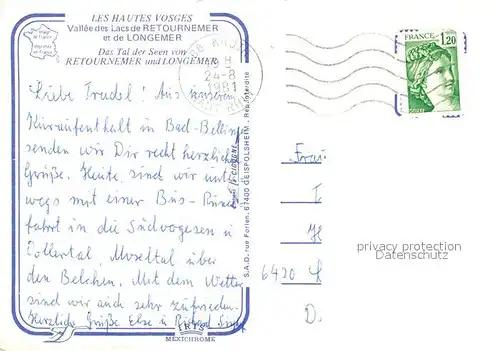 LES HAUTES VOSGES
Vallée des Lacs de RETOURNEMER
et de LONGEMER
Das Tal der Seen von
RETOURNEMER und LONGEMER
68
H
24-8
1981
HAUT RHIN
FRANCE
1,20
Liebe Trudel! Aus unserem
Kuraufenthalt in Bad-Bellingen
senden wir Dir recht herzliche
Grüße. Heute sind wir unter
wegs mit einer Bus-Rund
fahrt in die Südvogesen u
Moseltal über
den Belchen. Mit dem Wetter
sind wir auch sehr zufrieden.
Herzliche Grüße Else u
S.A.D. rue Forlen, 67400 GEISPOLSHEIM, Rep. interdite
Frau
I
H
6420 L
D.
privacy protection
Datenschutz
IRIS
MEXICHROME